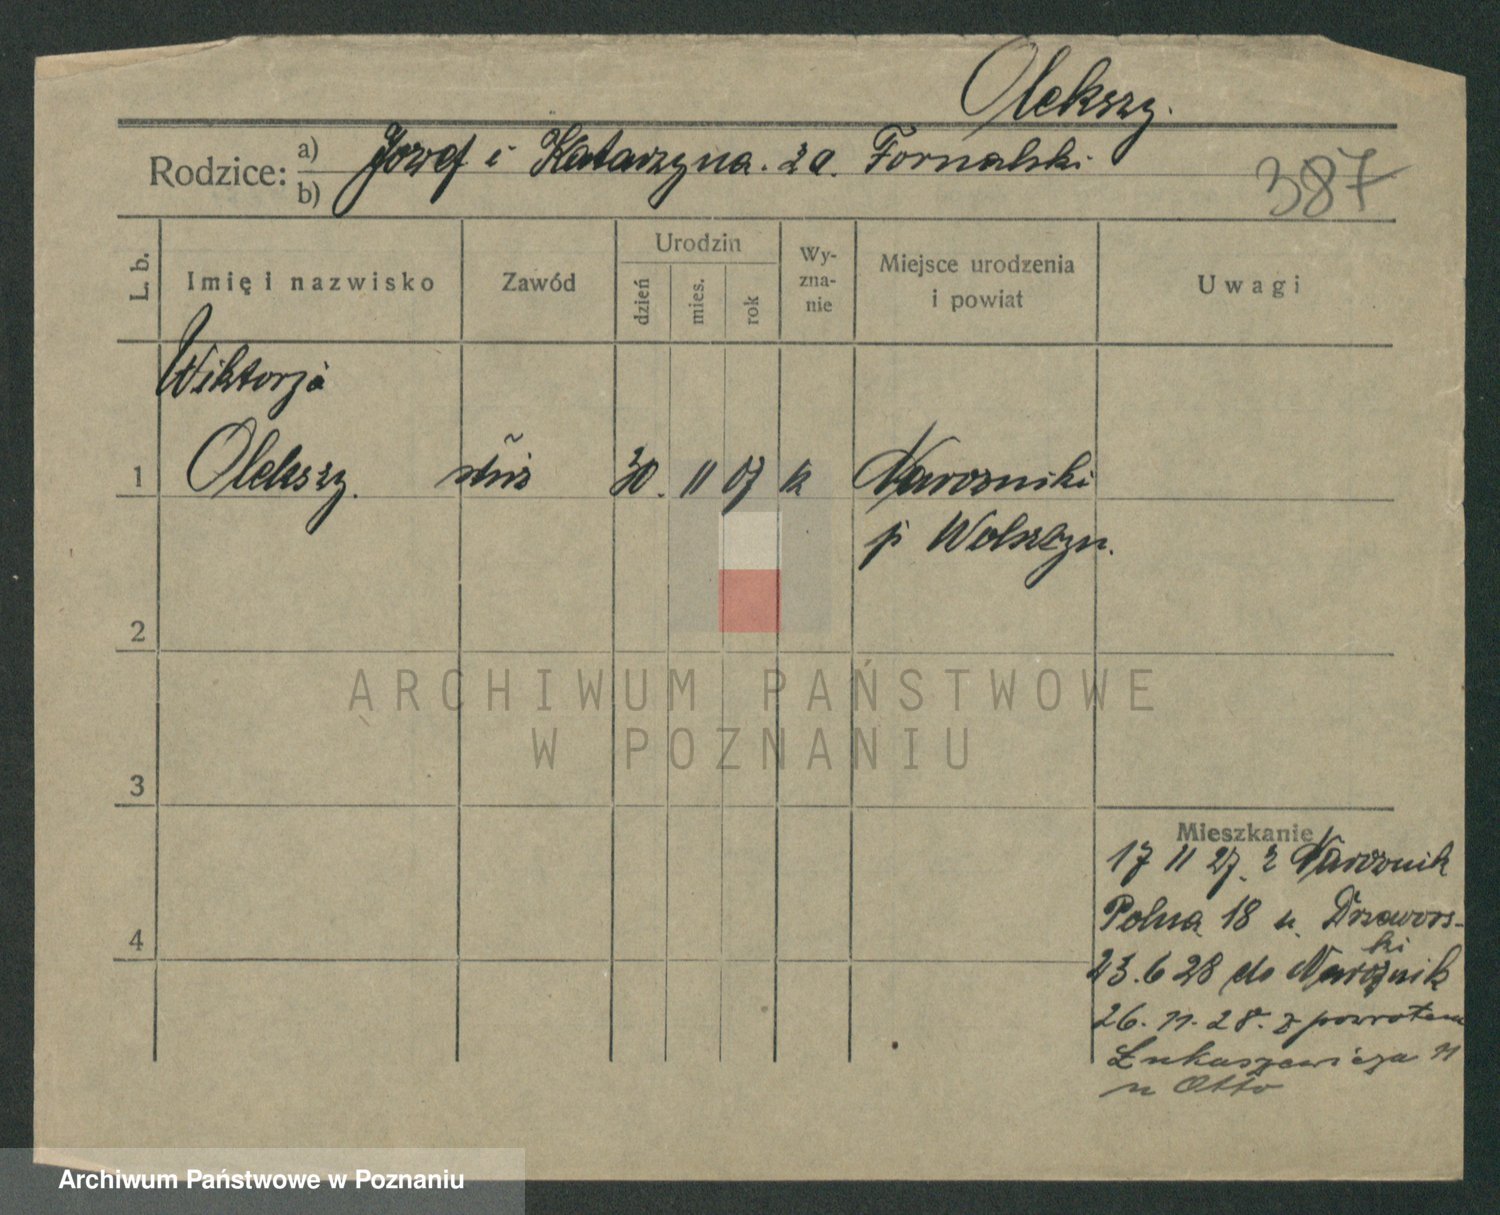 Olekszy.
Rodzice: a) Józef i Katarzyna. za. Fornalski
b)
387
L. b. Imię i nazwisko Zawód Urodzin dzień mies. rok Wy-zna-nie Miejsce urodzenia i powiat Uwagi
Wiktorja
1 Olekszy. służ 30. 11 07 k Narozniki
p Wolsztyn.
2
ARCHIWUM PAŃSTWOWE
W POZNANIU
3
Mieszkanie
17 11 27. z Naroznik
4 Polna 18 u. Drzewors-
ki
23.6 28 do Narożnik
26. 11. 28. z powrotem
Łukaszewicza 11
u Otto
Archiwum Państwowe w Poznaniu